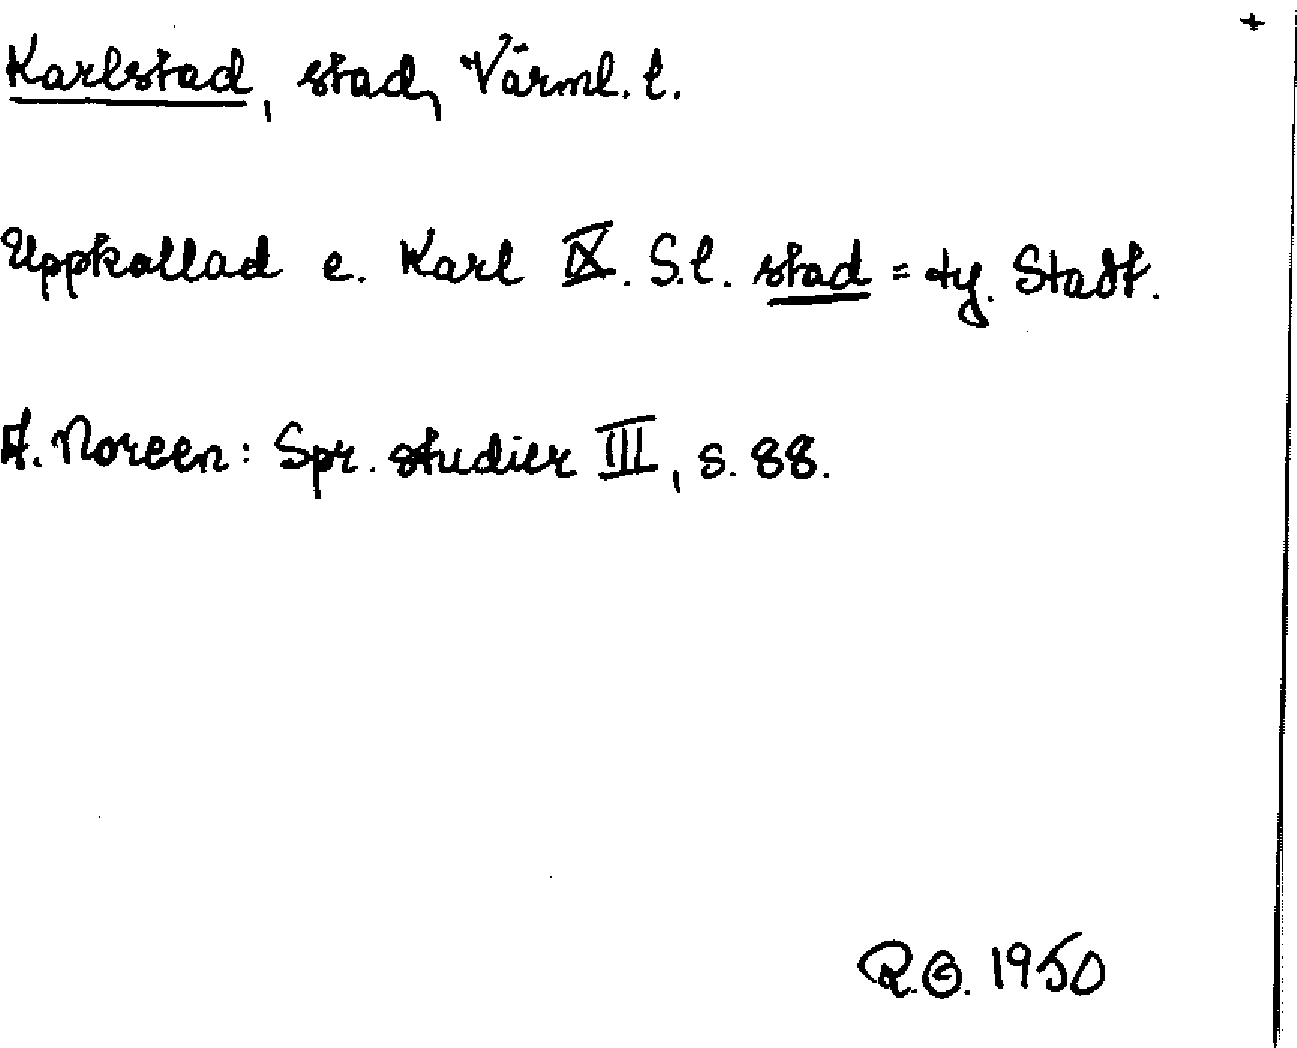 +
Karlstad, stad, Värml. l.
Uppkallad e. Karl IX. S.l. stad = ty. Stadt.
A. Noreen: Spr. studier III, s. 88.
R.G. 1950